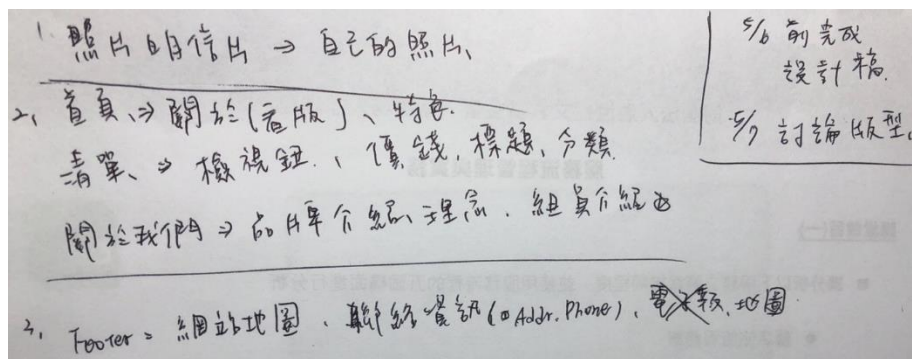 1. 照片明信片 → 自己的照片、
2、首頁、⇒ 關於(看版)、特色.
清單、⇒ 檢視鈕.、價錢、標題、分類.
關於我們 ⇒ 品牌介紹、理念、組員介紹
3、Footer = 網站地圖、聯絡資訊(Addr. Phone)、電子報、地圖
5/6 前完成
設計稿.
5/7 討論版型.